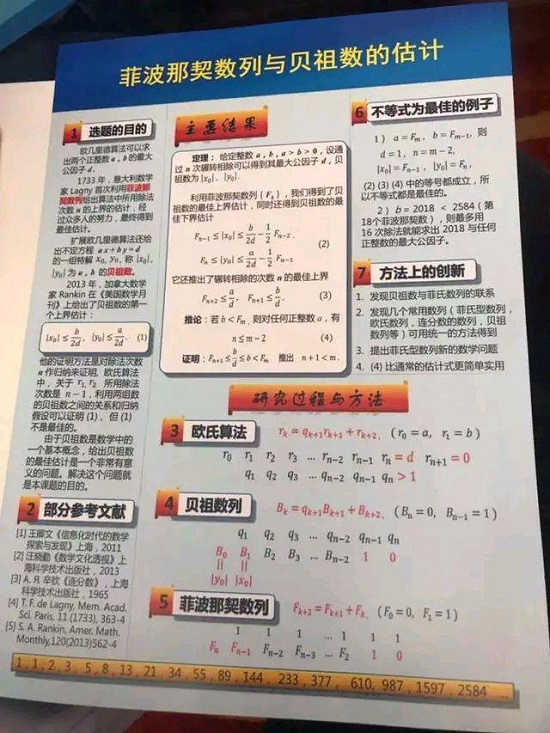 菲波那契数列与贝祖数的估计
1 选题的目的
欧几里德算法可以求
出两个正整数 a, b 的最大
公因子 d.
1733 年，意大利数学
家 Lagny 首次利用菲波那
契数列给出算法中所用除法
次数 n 的上界的估计，经
过众多人的努力，最终得到
最佳估计。
扩展欧几里德算法还给
出不定方程 ax + by = d
的一组特解 x₀, y₀, 称 |x₀|,
|y₀| 为 a, b 的贝祖数。
2013 年，加拿大数学
家 Rankin 在《美国数学月
刊》上给出了贝祖数的第一
个上界估计：
|x₀| ≤ b/2d, |y₀| ≤ a/2d. (1)
他的证明方法是对除法次数
n 作归纳来证明. 欧几里德算法
中，关于 r₁, r₂ 所用除法
次数是 n − 1, 利用两组数
的贝祖数之间的关系和归纳
假设可以证明 (1)、但 (1)
不是最佳的。
由于贝祖数是数学中的
一个基本概念，给出贝祖数
的最佳估计是一个非常有意
义的问题。解决这个问题就
是本课题的目的。
2 部分参考文献
[1] 王卿文《信息化时代的数学
探索与发现》上海，2011
[2] 汪晓勤《数学文化透视》上
海科学技术出版社，2013
[3] A. Я. 辛钦《连分数》，上海
科学技术出版社，1965
[4] T. F. de Lagny, Mem. Acad.
Sci. Paris, 11 (1733), 363-4
[5] S. A. Rankin, Amer. Math.
Monthly,120(2013)562-4
主要结果
定理：给定整数 a, b, a > b > 0, 设通
过 n 次辗转相除可以得到其最大公因子 d, 贝
祖数为 |x₀|, |y₀|.
利用菲波那契数列 (Fₖ)，我们得到了贝
祖数的最佳上界估计，同时还得到贝祖数的最
佳下界估计
Fₙ₋₁ ≤ |x₀| ≤ b/2d − 1/2 Fₙ₋₂,
(2)
Fₙ ≤ |y₀| ≤ a/2d − 1/2 Fₙ₋₁.
它还推出了辗转相除的次数 n 的最佳上界
Fₙ₊₂ ≤ a/d, Fₙ₊₁ ≤ b/d. (3)
推论：若 b < Fₘ, 则对任何正整数 a，有
n ≤ m − 2 (4)
证明：Fₙ₊₁ ≤ b/d ≤ b < Fₘ 推出 n + 1 < m.
6 不等式为最佳的例子
1） a = Fₘ, b = Fₘ₋₁, 则
d = 1, n = m − 2,
|x₀| = Fₙ₋₁, |y₀| = Fₙ,
(2) (3) (4) 中的等号都成立，所
以不等式都是最佳的。
2）b = 2018 < 2584 ( 第
18个菲波那契数 )，则最多用
16 次除法就能求出 2018 与任何
正整数的最大公因子。
7 方法上的创新
1. 发现贝祖数与菲氏数列的联系
2. 发现几个常用数列（菲氏型数列，
欧氏数列，连分数的数列，贝祖
数列等）可用统一的方法得到
3. 提出菲氏型数列新的数学问题
4. (4) 比通常的估计式更简单实用
研究过程与方法
3 欧氏算法 rₖ = qₖ₊₁rₖ₊₁ + rₖ₊₂, (r₀ = a, r₁ = b)
r₀ r₁ r₂ r₃ ... rₙ₋₂ rₙ₋₁ rₙ = d rₙ₊₁ = 0
q₁ q₂ q₃ ... qₙ₋₂ qₙ₋₁ qₙ > 1
4 贝祖数列 Bₖ = qₖ₊₁Bₖ₊₁ + Bₖ₊₂, (Bₙ = 0, Bₙ₋₁ = 1)
q₁ q₂ q₃ ... qₙ₋₂ qₙ₋₁ qₙ
B₀ B₁ B₂ B₃ ... Bₙ₋₂ 1 0
|| ||
|y₀| |x₀|
5 菲波那契数列 Fₖ₊₂ = Fₖ₊₁ + Fₖ, (F₀ = 0, F₁ = 1)
1 1 1 ... 1 1 1
Fₙ Fₙ₋₁ Fₙ₋₂ Fₙ₋₃ ... F₂ 1 0
1, 1, 2, 3, 5, 8, 13, 21, 34, 55, 89, 144, 233, 377, 610, 987, 1597, 2584 ...